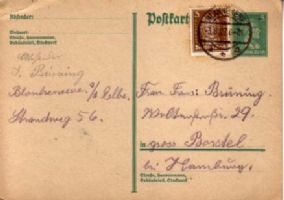 Absender:
Postkarte
Wohnort:
Straße, Hausnummer,
Gebäudeteil, Stockwerk
Absender
J. Brüning
Blankenese a/Elbe.
Strandweg 56.
Frau Hans Brüning
29.
in gross Borstel
bei Hamburg.
Straße, Hausnummer,
Gebäudeteil, Stockwerk